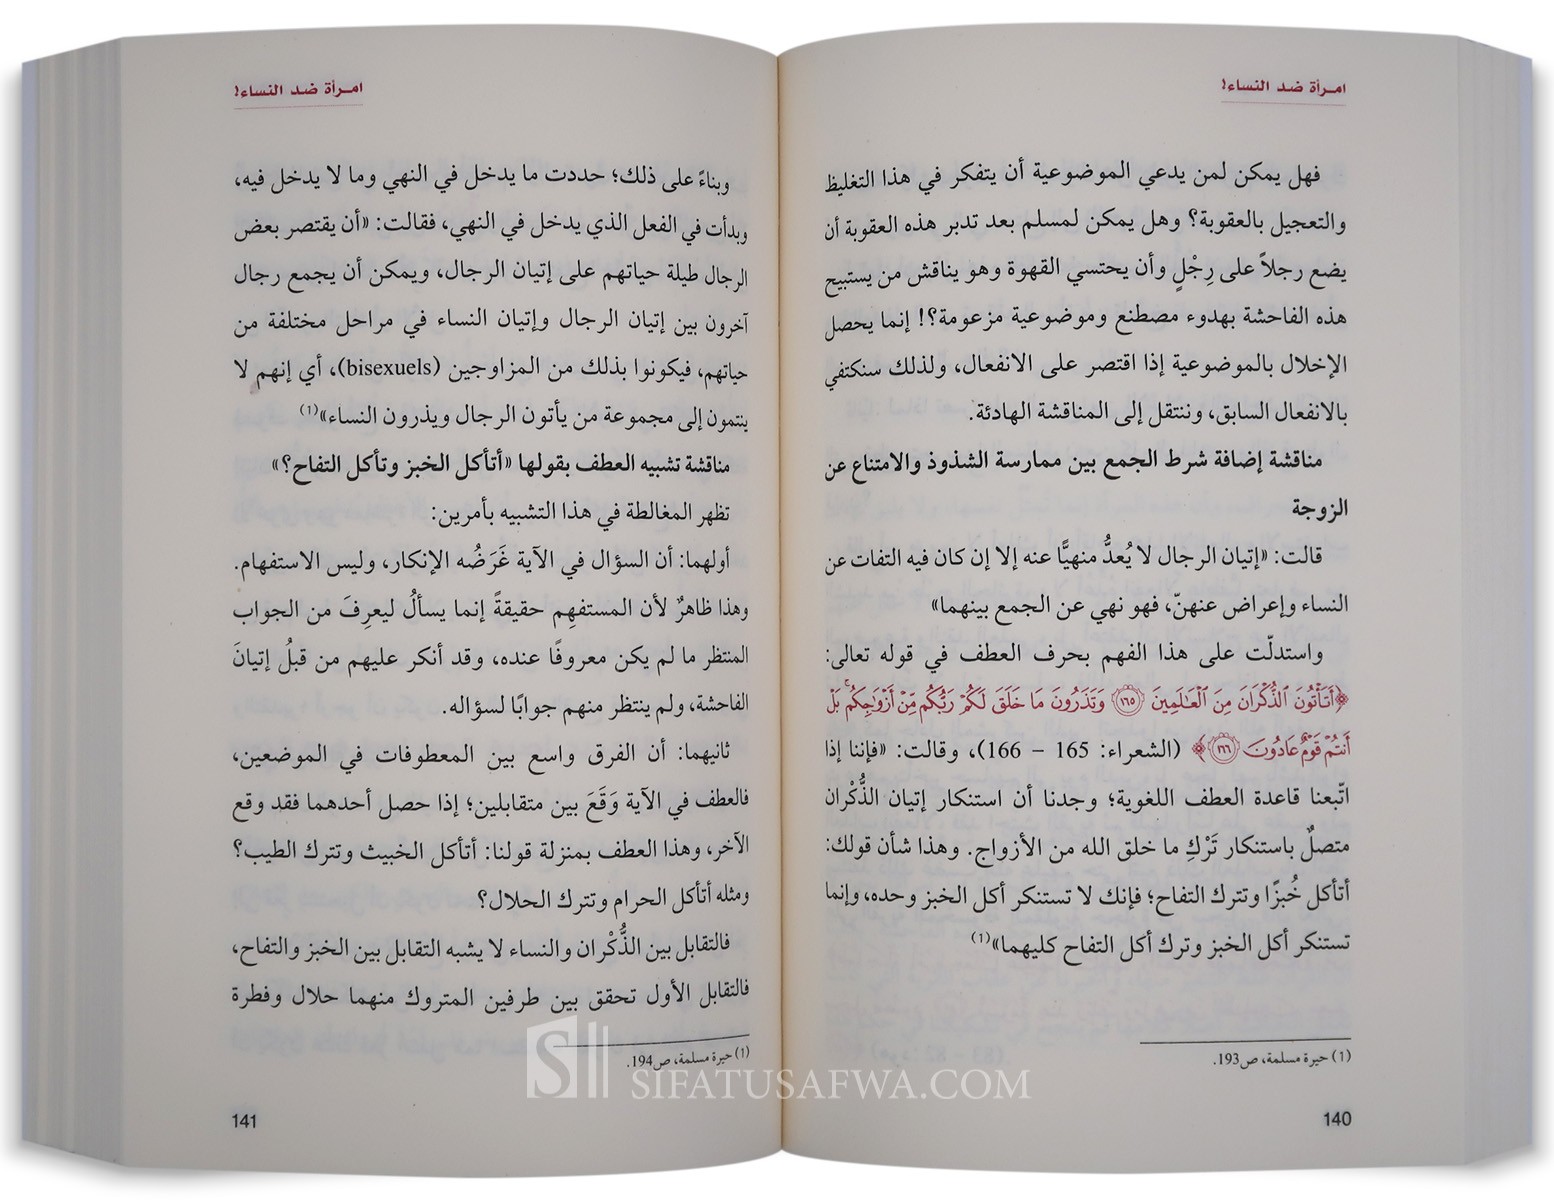 امرأة ضد النساء!
فهل يمكن لمن يدعي الموضوعية أن يتفكر في هذا التغليظ
والتعجيل بالعقوبة؟ وهل يمكن لمسلم بعد تدبر هذه العقوبة أن
يضع رجلاً على رِجْلٍ وأن يحتسي القهوة وهو يناقش من يستبيح
هذه الفاحشة بهدوء مصطنع وموضوعية مزعومة؟! إنما يحصل
الإخلال بالموضوعية إذا اقتصر على الانفعال، ولذلك سنكتفي
بالانفعال السابق، وننتقل إلى المناقشة الهادئة.
مناقشة إضافة شرط الجمع بين ممارسة الشذوذ والامتناع عن
الزوجة
قالت: «إتيان الرجال لا يُعدُّ منهيًّا عنه إلا إن كان فيه التفات عن
النساء وإعراض عنهنّ، فهو نهي عن الجمع بينهما»
واستدلّت على هذا الفهم بحرف العطف في قوله تعالى:
﴿أَتَأْتُونَ ٱلذُّكْرَانَ مِنَ ٱلْعَٰلَمِينَ ١٦٥ وَتَذَرُونَ مَا خَلَقَ لَكُمْ رَبُّكُم مِّنْ أَزْوَٰجِكُم ۚ بَلْ
أَنتُمْ قَوْمٌ عَادُونَ ١٦٦﴾ (الشعراء: 165 – 166)، وقالت: «فإننا إذا
اتّبعنا قاعدة العطف اللغوية؛ وجدنا أن استنكار إتيان الذُّكْران
متصلٌ باستنكار تَرْكِ ما خلق الله من الأزواج. وهذا شأن قولك:
أتأكل خُبزًا وتترك التفاح؛ فإنك لا تستنكر أكل الخبز وحده، وإنما
تستنكر أكل الخبز وترك أكل التفاح كليهما»(١)
(١) حيرة مسلمة، ص193.
140
امرأة ضد النساء!
وبناءً على ذلك؛ حددت ما يدخل في النهي وما لا يدخل فيه،
وبدأت في الفعل الذي يدخل في النهي، فقالت: «أن يقتصر بعض
الرجال طيلة حياتهم على إتيان الرجال، ويمكن أن يجمع رجال
آخرون بين إتيان الرجال وإتيان النساء في مراحل مختلفة من
حياتهم، فيكونوا بذلك من المزاوجين (bisexuels)، أي إنهم لا
ينتمون إلى مجموعة من يأتون الرجال ويذرون النساء»(١)
مناقشة تشبيه العطف بقولها «أتأكل الخبز وتأكل التفاح؟»
تظهر المغالطة في هذا التشبيه بأمرين:
أولهما: أن السؤال في الآية غَرَضُه الإنكار، وليس الاستفهام.
وهذا ظاهرٌ لأن المستفهِم حقيقةً إنما يسألُ ليعرِفَ من الجواب
المنتظر ما لم يكن معروفًا عنده، وقد أنكر عليهم من قبلُ إتيانَ
الفاحشة، ولم ينتظر منهم جوابًا لسؤاله.
ثانيهما: أن الفرق واسع بين المعطوفات في الموضعين،
فالعطف في الآية وَقَعَ بين متقابلين؛ إذا حصل أحدهما فقد وقع
الآخر، وهذا العطف بمنزلة قولنا: أتأكل الخبيث وتترك الطيب؟
ومثله أتأكل الحرام وتترك الحلال؟
فالتقابل بين الذُّكْران والنساء لا يشبه التقابل بين الخبز والتفاح،
فالتقابل الأول تحقق بين طرفين المتروك منهما حلال وفطرة
(١) حيرة مسلمة، ص194.
141
SIFATUSAFWA.COM